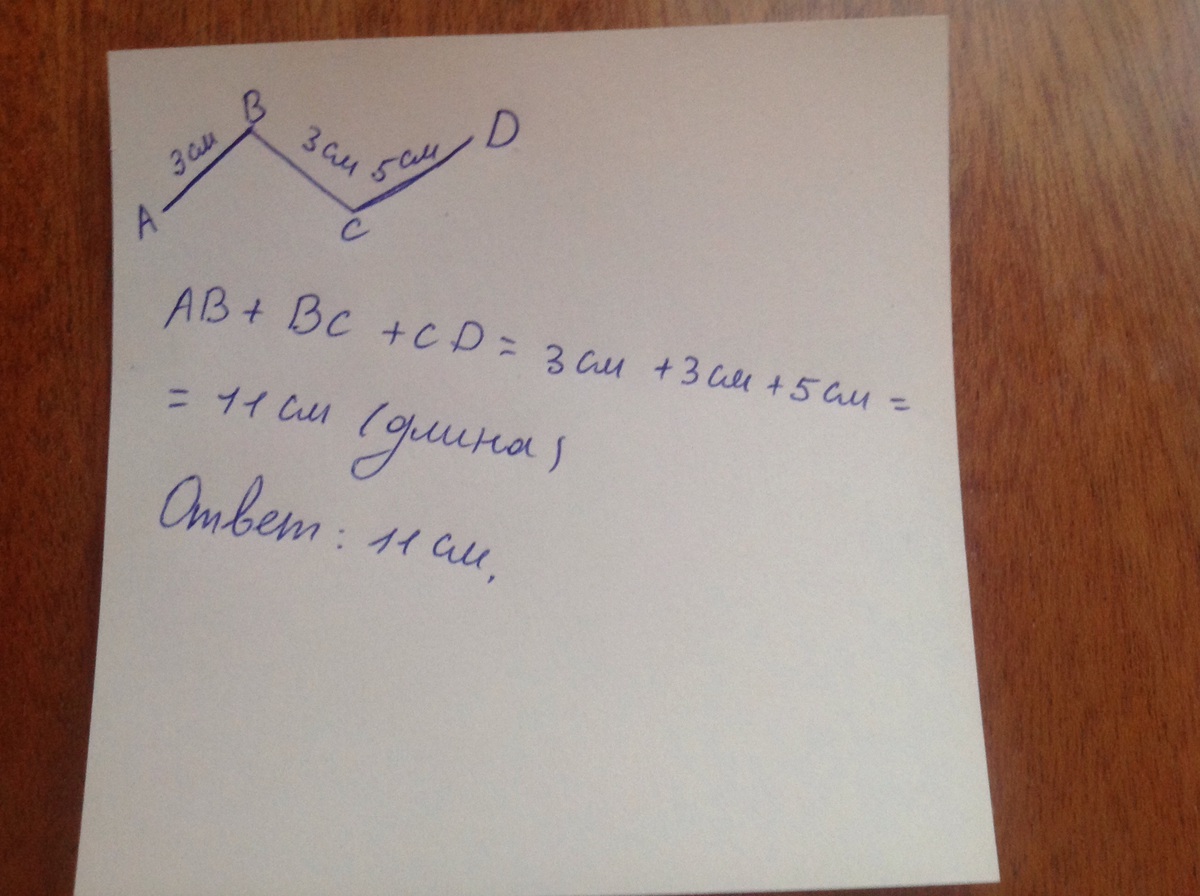 B
D
3см
3см
5см
A
C
AB + BC + CD = 3 см + 3 см + 5 см =
= 11 см (длина)
Ответ: 11 см.